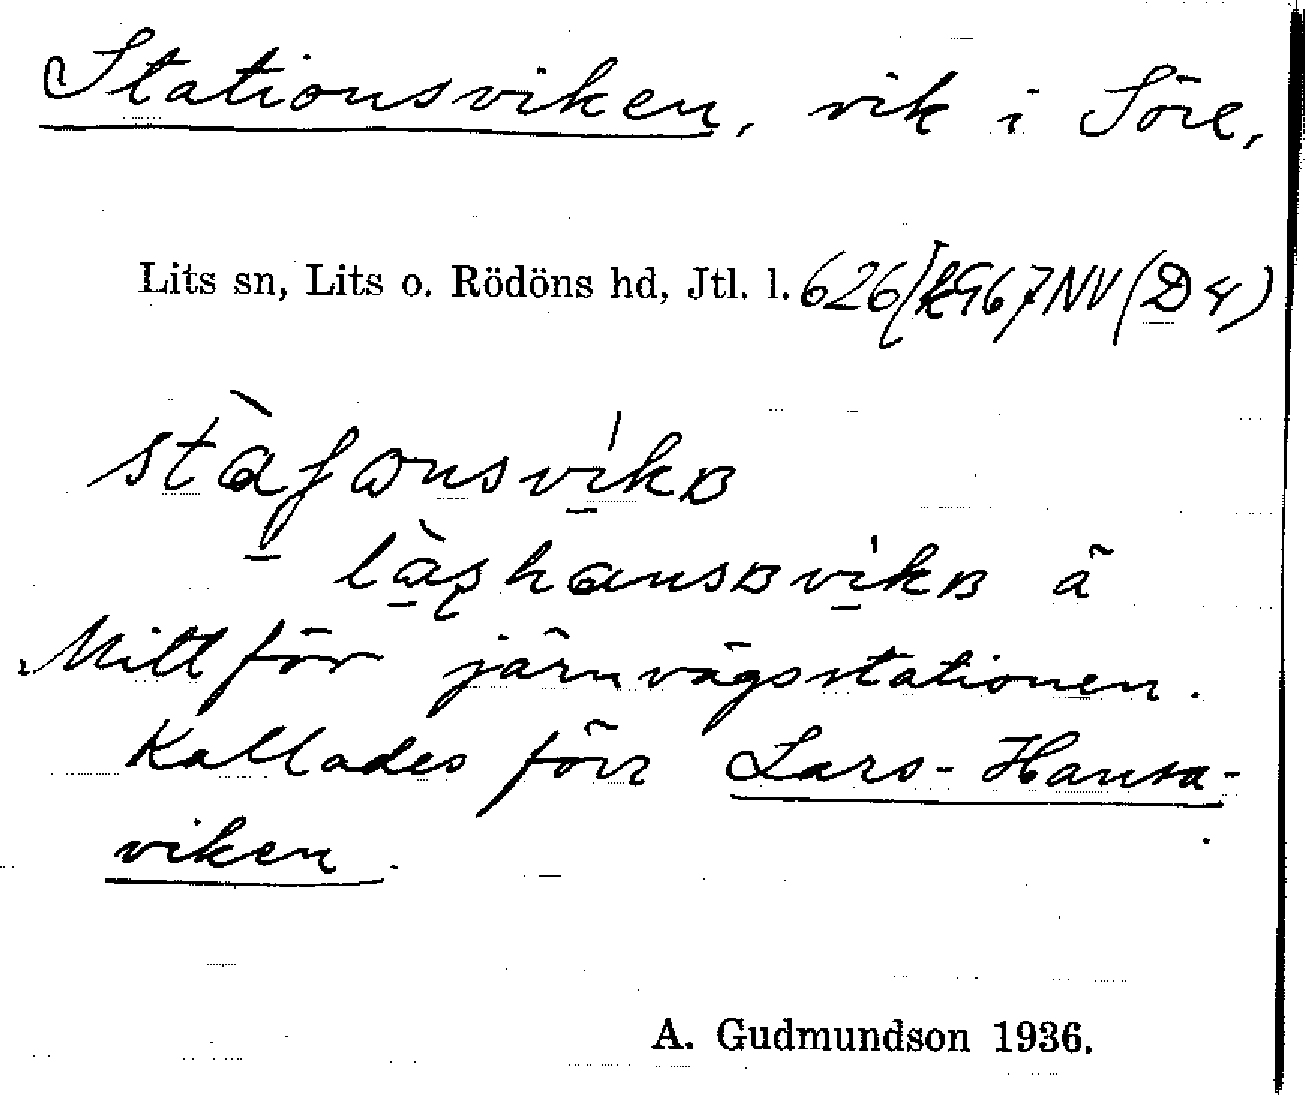 Stationsviken, vik i Söre,
Lits sn, Lits o. Rödöns hd, Jtl. l. 626/ NV (D 4)
Mitt för järnvägsstationen.
Kallades förr Lars-Hansa-
viken.
A. Gudmundson 1936.